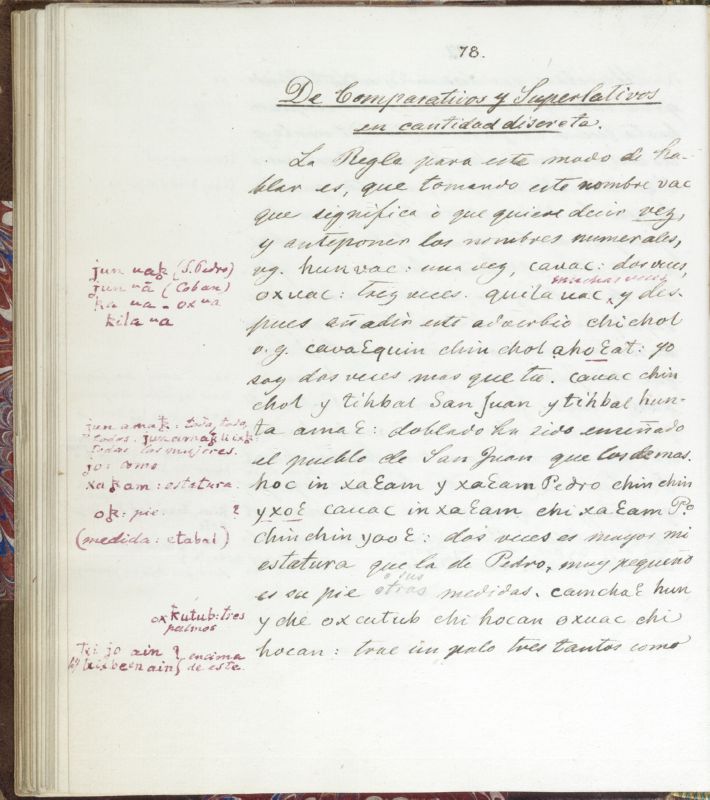 78.
De Comparativos y Superlativos
en cantidad discreta.
La Regla para este modo de ha-
blar es, que tomando este nombre vac
que significa ò que quiere decir vez,
y anteponer los nombres numerales,
vg. hunvac: una vez, cavac: dos veces,
muchas veces
oxvac: trez veces. quila vac, y des-
pues añadir este adverbio chi chol
v. g. cavaƐquin chin chol ahoƐat: yo
soy dos veces mas que tu. cavac chin
chol y tihbal San Juan y tihbal hun-
ta amaƐ: doblado ha sido enseñado
el pueblo de San Juan que los demas.
hoc in xaƐam y xaƐam Pedro chin chin
y xoƐ cavac in xaƐam chi xaƐam Po
chin chin yaoƐ: dos veces es mayor mi
estatura que la de Pedro, muy pequeño
o sus
es su pie otras medidas. camchaƐ hun
y chè oxcutub chi hocan oxuac chi
hocan: trae un palo tres tantos como
jun uaꝁ (S. Pedro)
jun uā (Coban)
ka ua - ox ua
kila ua
jun amaꝁ: todo, toda,
todos.
todas las mujeres.
jo: como
xaꝁam: estatura.
oꝁ: pie. ?
(medida: etabal)
oxkutub: tres
palmos
ki jo ain } encima
de este.